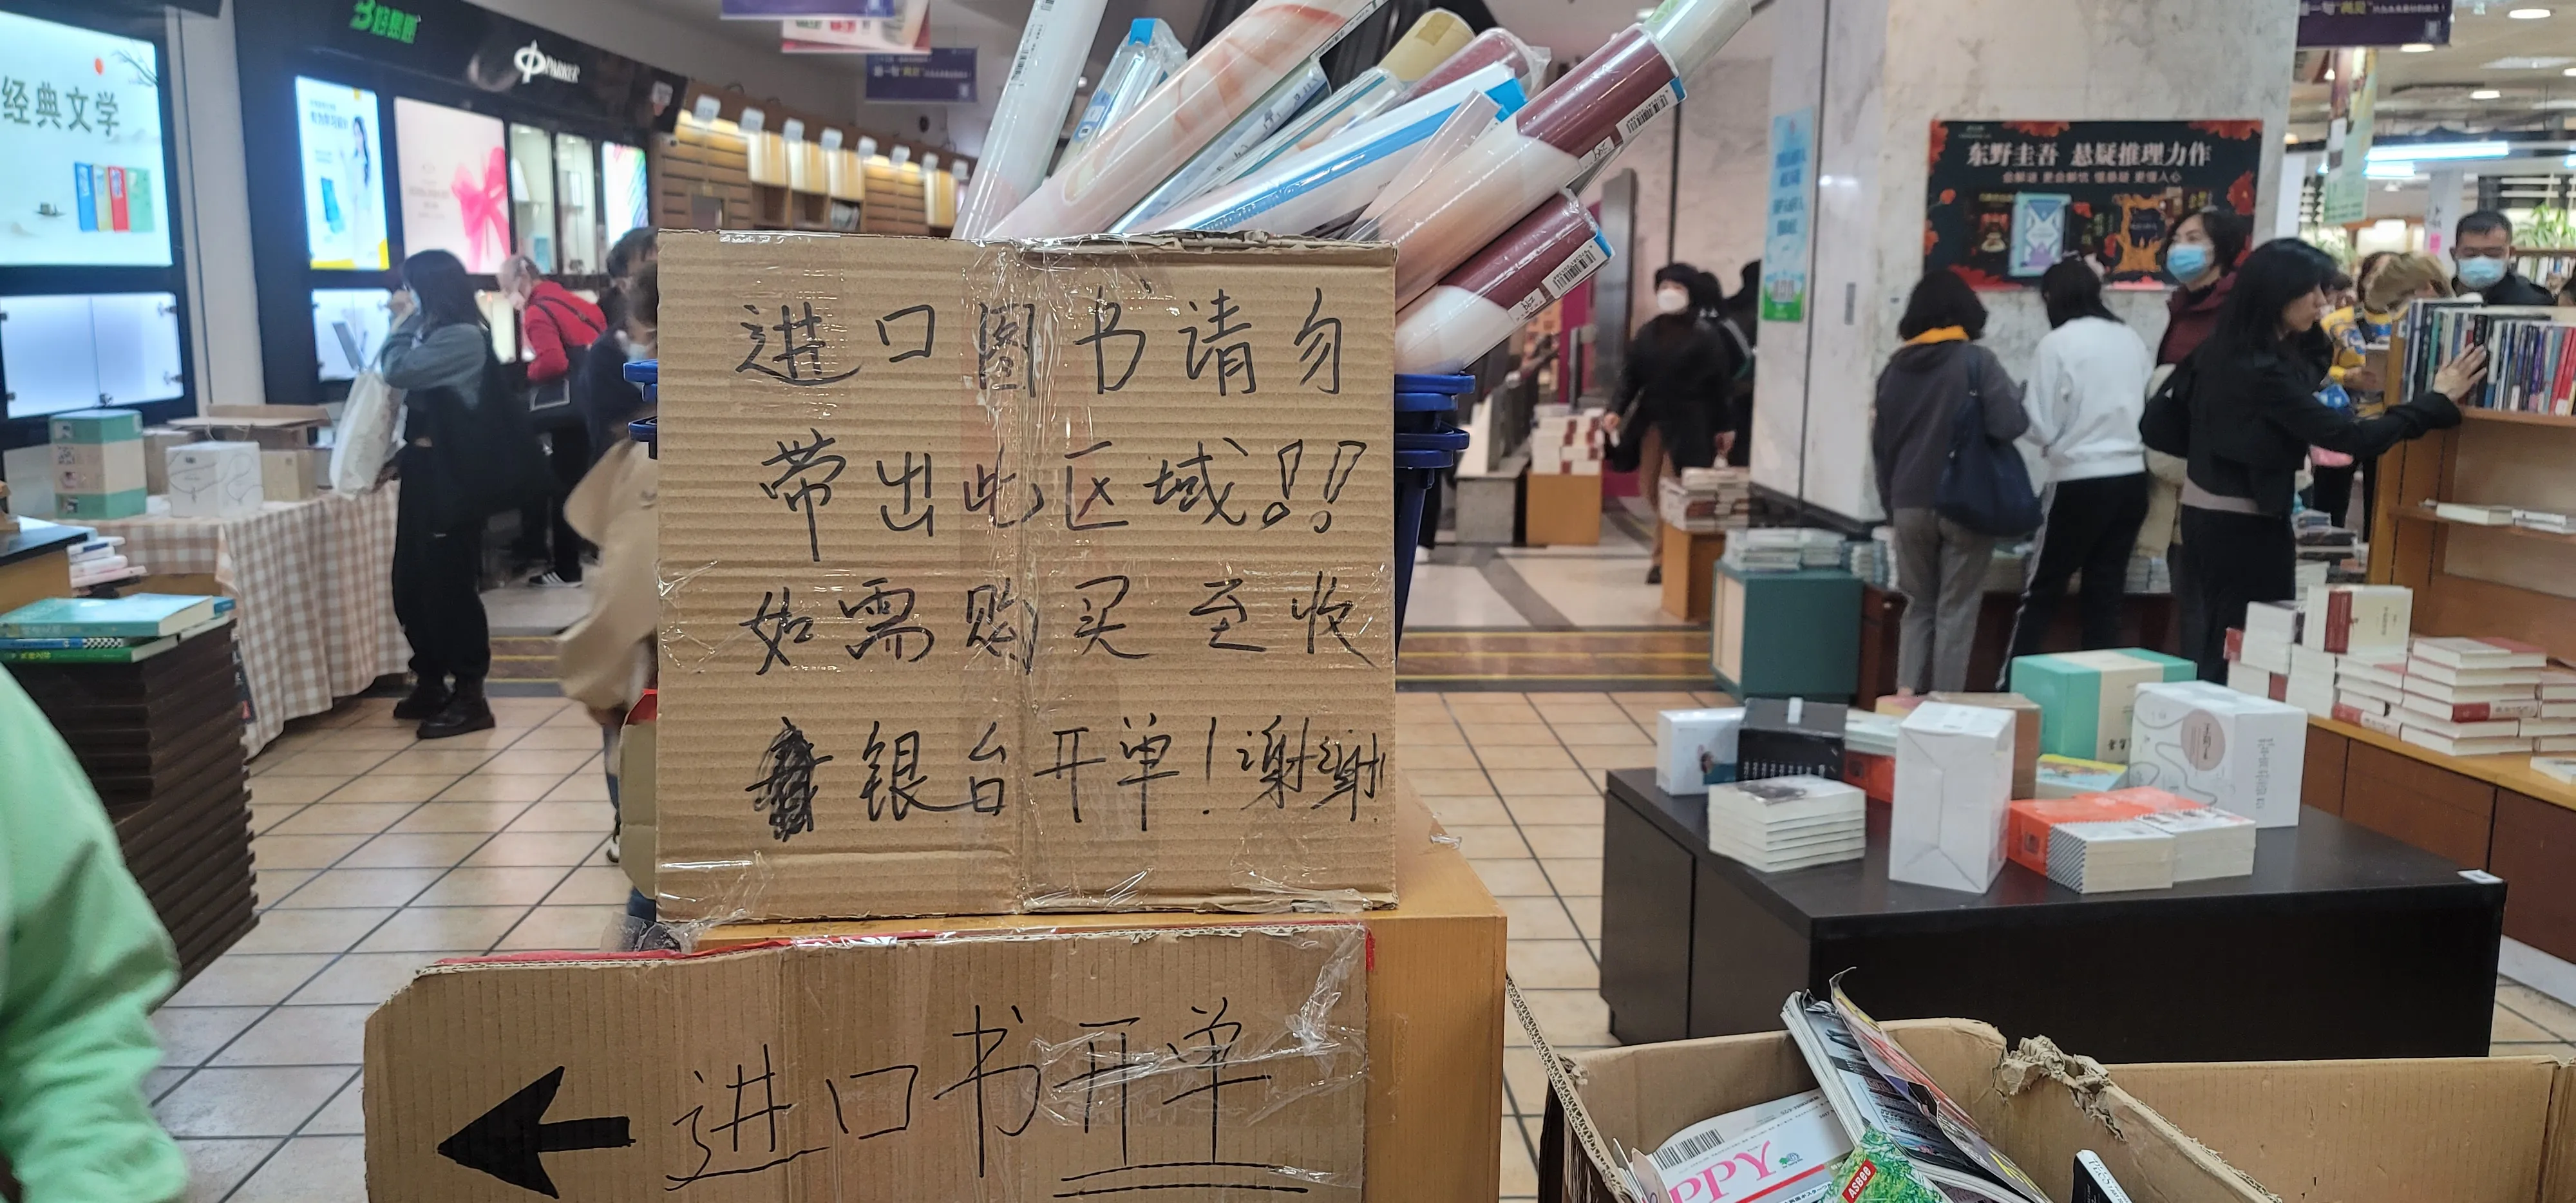 经典文学
PARKER
东野圭吾 悬疑推理力作
进口图书请勿
带出此区域!!
如需购买至收
银台开单!谢谢!
← 进口书开单
ASBEE